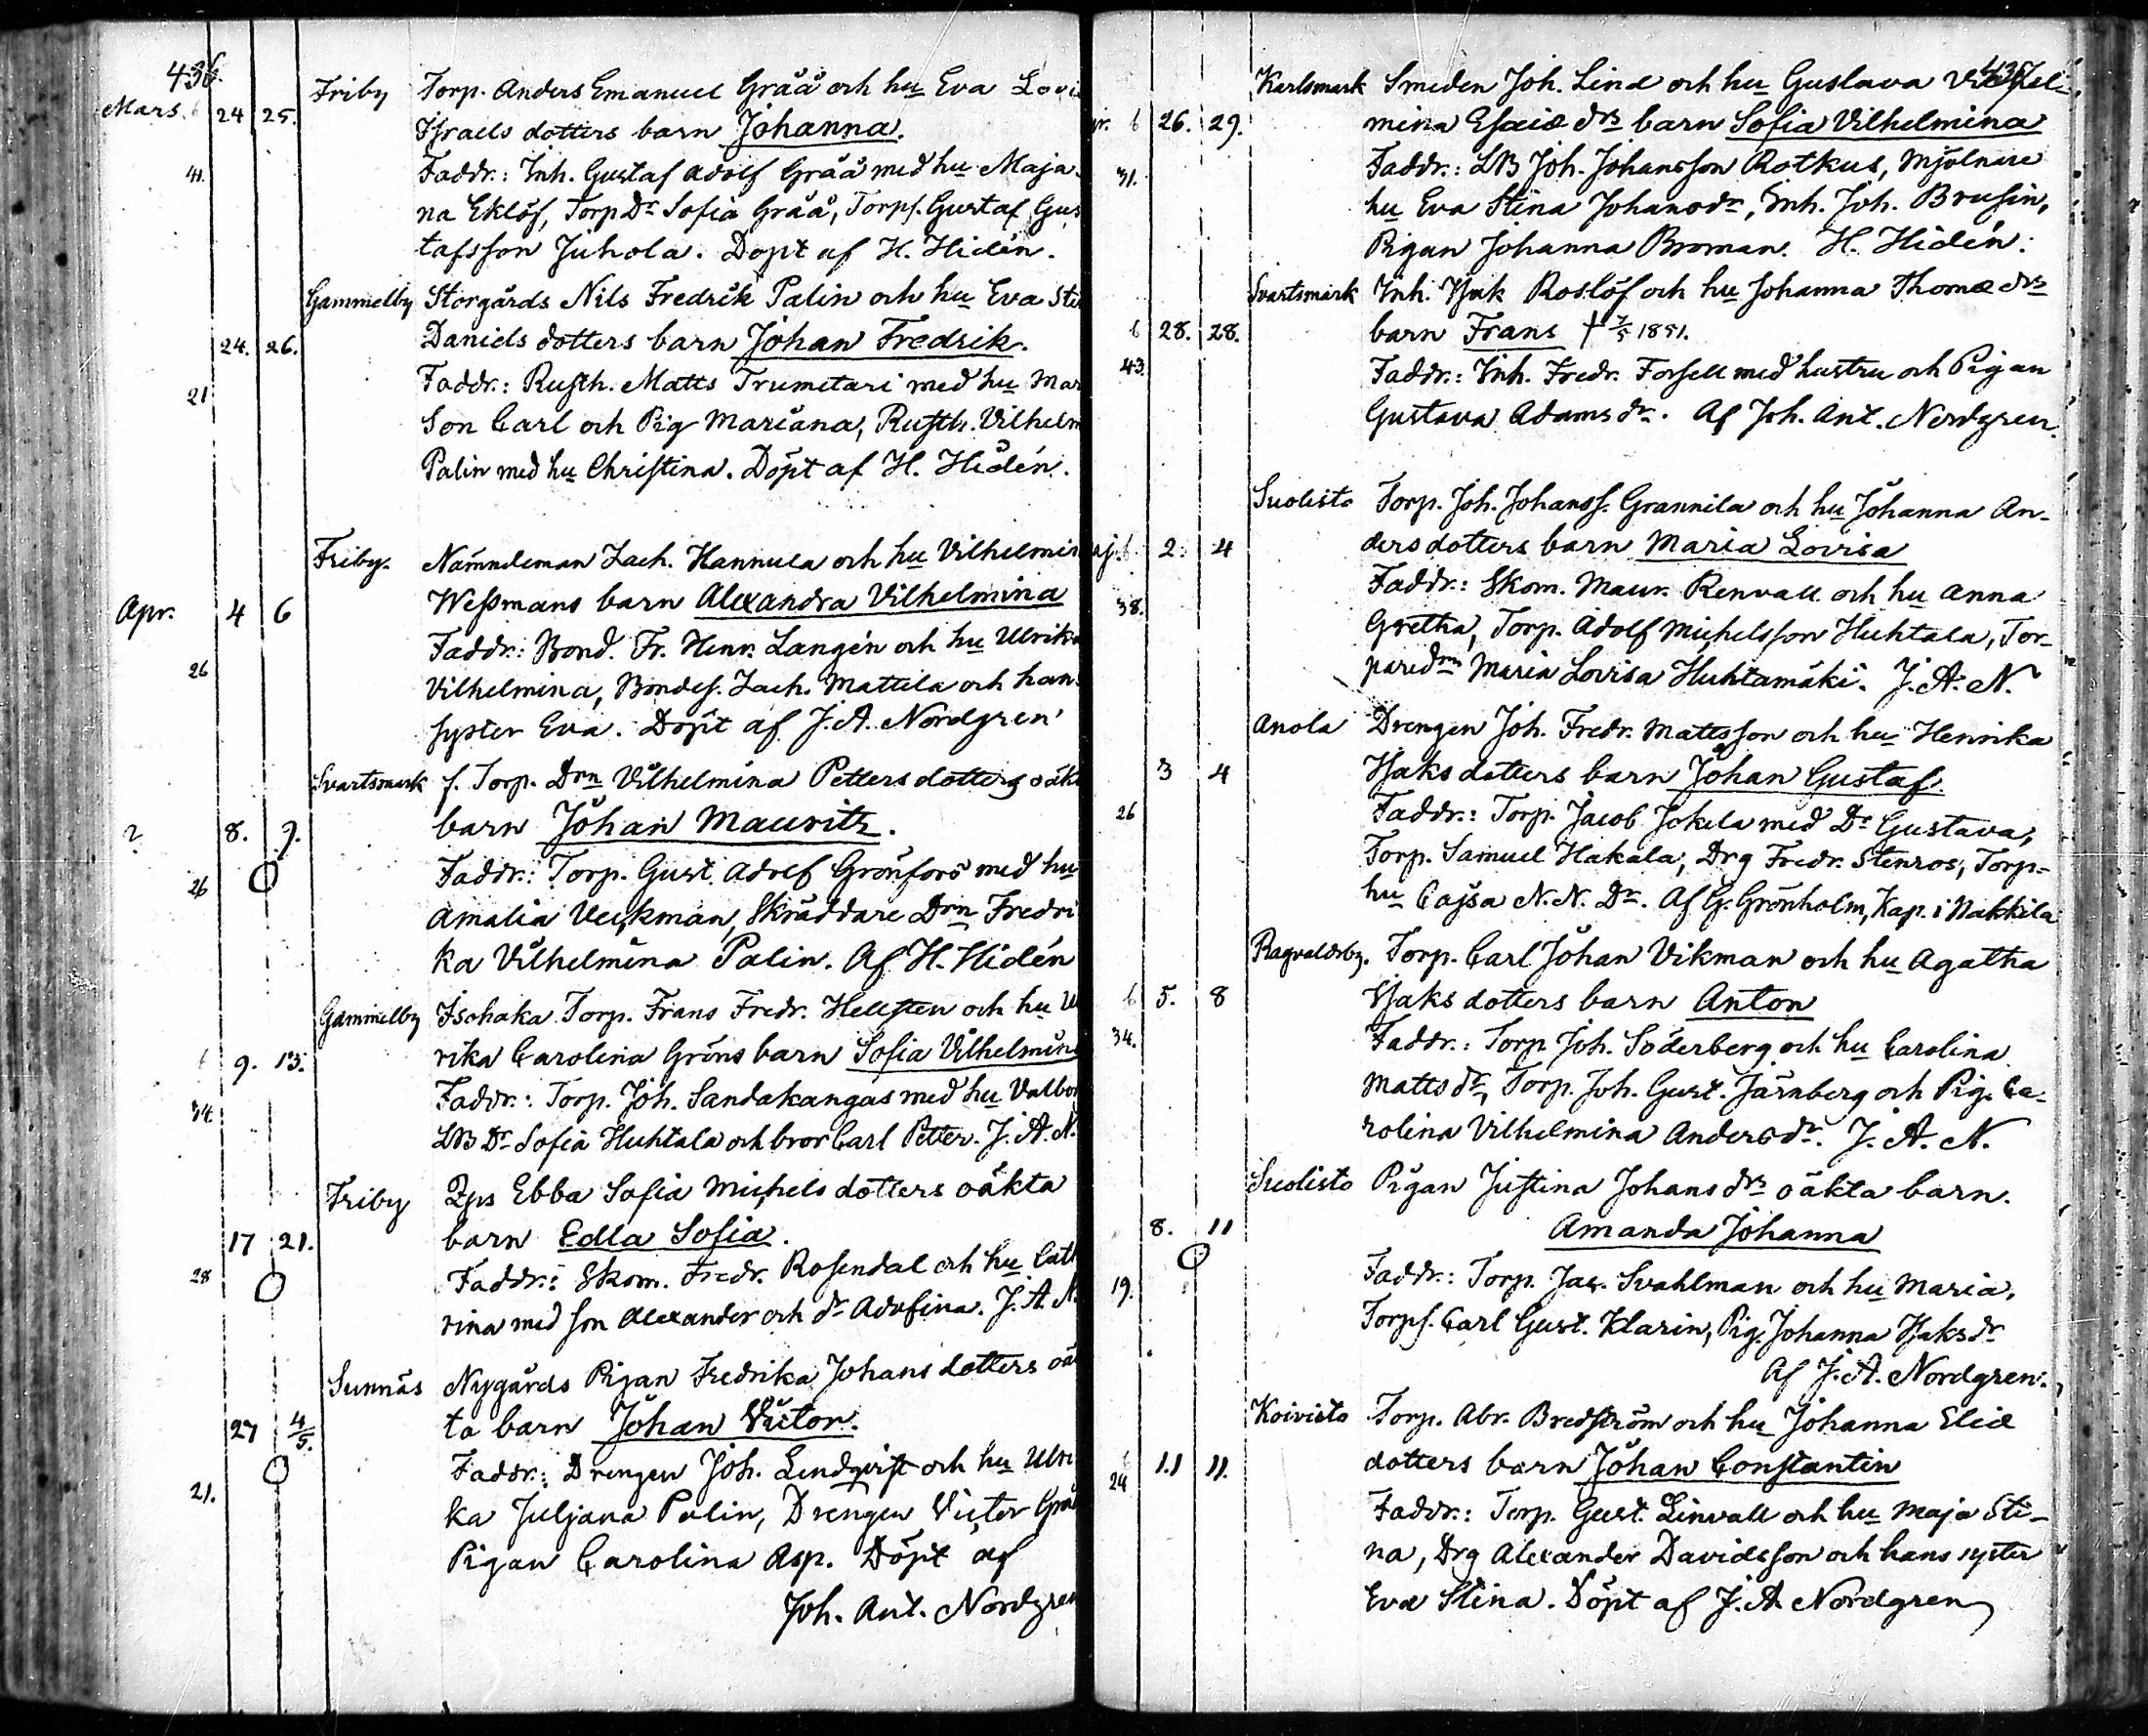 436.
Friby Torp. Anders Emanuel Gråå och hu Eva Lovi
Mars. 6 24 25. Israels dotters barn Johanna.
41. Faddr.: Inh. Gustaf Adolf Gråå med hu Maja
na Eklöf, Torp Dr Sofia Gråå, Torps. Gustaf Gus
tafsson Juhola. Döpt af H. Hidén.
Gammelby Storgårds Nils Fredrik Palin och hu Eva Sti
24. 26. Daniels dotters barn Johan Fredrik.
21 Faddr.: Rusth. Matts Trumetari med hu Mar
Son Carl och Pig Mariana, Rusth. Vilhelm
Palin med hu Christina. Döpt af H. Hidén.
Friby. Nämndeman Zach. Hannula och hu Vilhelmin
Apr. 4 6 Wessmans barn Alexandra Vilhelmina
26 Faddr.: Bond. Fr. Henr. Langén och hu Ulrika
Vilhelmina, Bondes. Zach. Mattila och hans
syster Eva. Döpt af J. A. Nordgren
Svartsmark f. Torp. Drn Vilhelmina Petters dotters oäkt
2 8. 9. barn Johan Mauritz.
26 Faddr.: Torp. Gust. Adolf Grönfors med hu
Amalia Veckman, Skräddare Drn Fredri
ka Vilhelmina Palin. Af H. Hidén
Gammelby Isohaka Torp. Frans Fredr. Hellsten och hu Ul
6 9. 13. rika Carolina Gröns barn Sofia Vilhelmina
34. Faddr.: Torp. Joh. Sandakangas med hu Valbor
LB Dr Sofia Huhtala och bror Carl Petter. J. A. N.
Friby Qps Ebba Sofia Michels dotters oäkta
17 21. barn Edla Sofia.
28 Faddr.: Skom. Fredr. Rosendal och hu Cath
rina med son Alexander och dr Adolfina. J. A. N.
Sunnäs Nygårds Pigan Fredrika Johans dotters oäk
27 4/5. ta barn Johan Victor.
21. Faddr.: Drengen Joh. Lindqvist och hu Ulri
ka Juljana Palin, Drengen Victor Grå
Pigan Carolina Asp. Döpt af
Joh. Ant. Nordgren
437.
Karlsmark Smeden Joh. Lind och hu Gustava Vilhel-
pr. 6 26. 29. mina Esaiæ drs barn Sofia Vilhelmina
31. Faddr.: LB Joh. Johansson Rotkus, Mjölnare
hu Eva Stina Johansdr, Inh. Joh. Brusin,
Pigan Johanna Broman. H. Hidén.
Svartsmark Inh. Isak Roslöf och hu Johanna Thomæ drs
6 28. 28. barn Frans † 7/5 1851.
43. Faddr.: Inh. Fredr. Forsell med hustru och Pigan
Gustava Adamsdr. Af Joh. Ant. Nordgren.
Suolisto Torp. Joh. Johanss. Grannila och hu Johanna An-
aj. 6 2. 4 ders dotters barn Maria Lovisa
38. Faddr.: Skom. Maur. Renvall och hu Anna
Gretha, Torp. Adolf Michelsson Huhtala, Tor-
paredrn Maria Lovisa Huhtamäki. J. A. N.
Anola Drengen Joh. Fredr. Mattsson och hu Henrika
3 4 Isaks dotters barn Johan Gustaf
26 Faddr.: Torp. Jacob Jokela med Dr Gustava,
Torp. Samuel Hakala, Drg Fredr. Stenros, Torp-
hu Cajsa N. N. Dr. Af G. Grönholm, Kap. i Nakkila
Ragvaldsby. Torp. Carl Johan Vikman och hu Agatha
6 5. 8 Isaks dotters barn Anton
34. Faddr.: Torp. Joh. Söderberg och hu Carolina
Matts dr, Torp. Joh. Gust. Järnberg och Pig. Ca-
rolina Vilhelmina Andersdr. J. A. N.
Suolisto Pigan Justina Johans drs oäkta barn.
8. 11 Amanda Johanna
19. Faddr.: Torp. Jac. Svahlman och hu Maria,
Torps. Carl Gust. Klarin, Pig. Johanna Isaksdr
Af J. A. Nordgren.
Koivisto Torp. Abr. Bredström och hu Johanna Eliæ
6 11 11. dotters barn Johan Constantin
24 Faddr.: Torp. Gust. Linvall och hu Maja Sti-
na, Drg Alexander Davidsson och hans syster
Eva Stina. Döpt af J. A. Nordgren